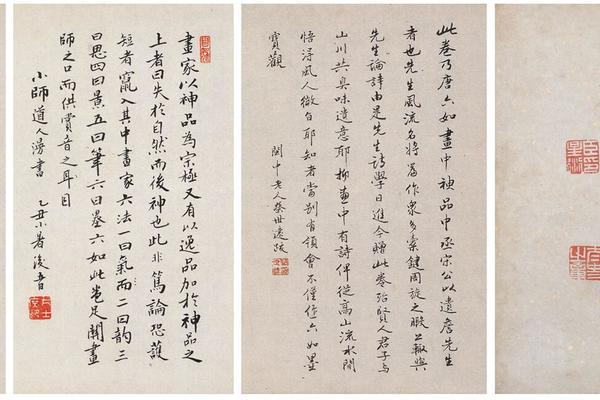 此卷乃唐六如畫中神品中丞宗公以遺唐先生
者也先生風流名將屬作泉多案鍵周旋之暇公輙與
先生論詩由是先生詩學日進今贈此卷殆賢人君子与
山川共臭味遺意耶抑畫中有詩俾從高山流水閒
悟得風人微旨耶知者當別有領會不僅作六如墨
寶觀
閩中老人蔡世遠跋
畫家以神品為宗極又有以逸品加於神品之
上者曰失於自然而後神也此非篤論恐護
短者竄入其中畫家六法一曰氣而二曰韵三
曰思四曰景五曰筆六曰墨六如此卷足開畫
師之口而供賞音之耳目
小師道人書 乙丑小暑後